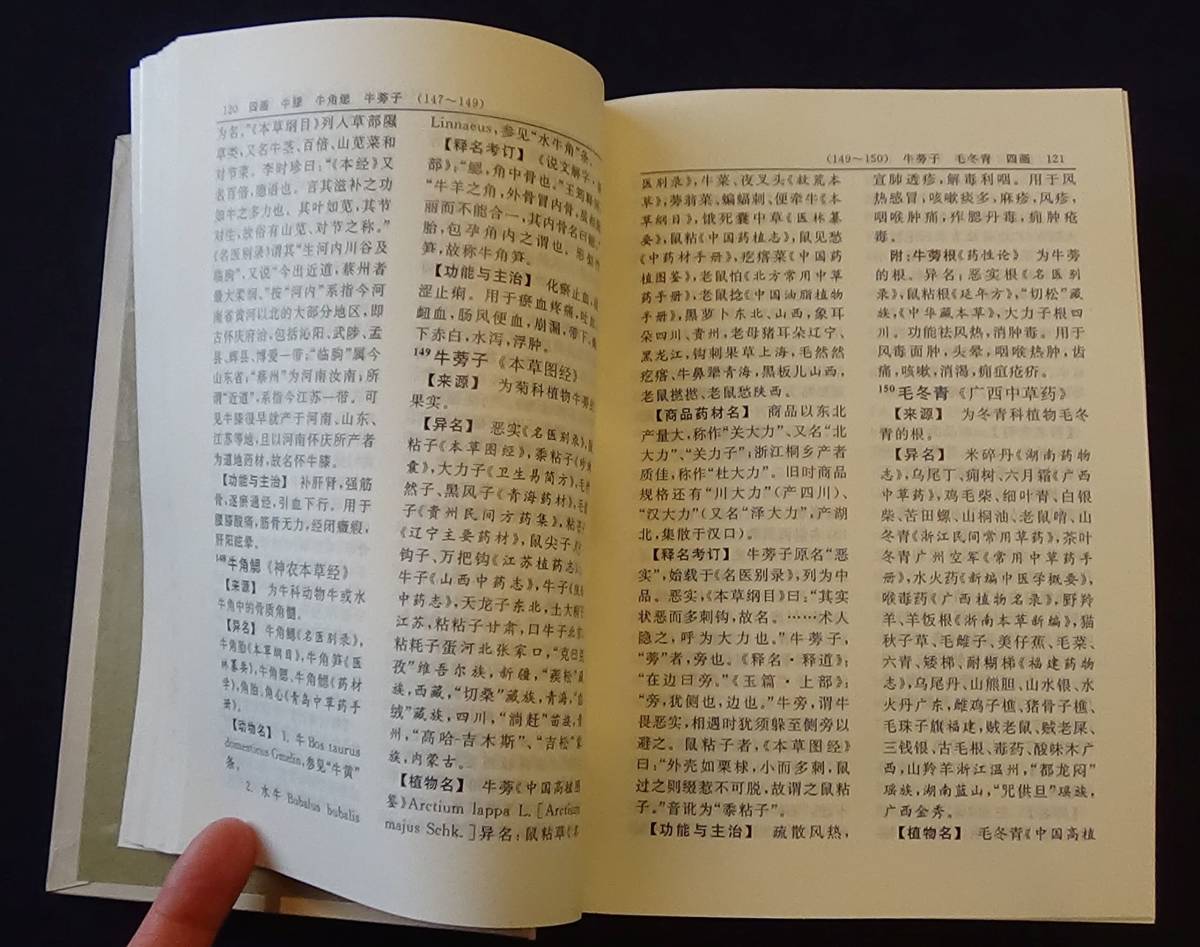 120 四画 牛膝 牛角䚡 牛蒡子 (147～149)
为名,”《本草纲目》列入草部隰
草类,又名牛茎、百倍、山苋菜和
对节菜。李时珍曰:“《本经》又
名百倍,隐语也。言其滋补之功
如牛之多力也。其叶如苋,其节
对生,故俗有山苋、对节之称。”
《名医别录》谓其“生河内川谷及
临朐”,又说“今出近道,蔡州者
最大柔润。”按“河内”系指今河
南省黄河以北的大部分地区,即
古怀庆府治,包括沁阳、武陟、孟
县、辉县、博爱一带;“临朐”属今
山东省;“蔡州”为河南汝南;所
谓“近道”,系指今江苏一带。可
见牛膝侵早就产于河南、山东、
江苏等地,且以河南怀庆所产者
为道地药材,故名怀牛膝。
【功能与主治】 补肝肾,强筋
骨,逐瘀通经,引血下行。用于
腰膝酸痛,筋骨无力,经闭癥瘕,
肝阳眩晕。
148牛角䚡《神农本草经》
【来源】 为牛科动物牛或水
牛角中的骨质角髓。
【异名】 牛角䚡《名医别录》,
牛角胎《本草纲目》,牛角笋《医
林纂要》,牛角腮、牛角鳃《药材
学》,角胎、角心《青岛中草药手
册》。
【动物名】 1. 牛Bos taurus
domesticus Gmelin,参见“牛黄”
条。
2. 水牛 Bubalus bubalis
Linnaeus,参见“水牛角”条。
【释名考订】 《说文解字·
部》:“䚡,角中骨也。”王筠
“牛羊之角,外骨冒内骨,
丽而不能合一,其内骨名曰
胎,包孕角内之谓也。形
笋,故称牛角笋。
【功能与主治】 化瘀止血,
涩止痢。用于瘀血疼痛,吐
衄血,肠风便血,崩漏,带下,
下赤白,水泻,浮肿。
149牛蒡子《本草图经》
【来源】 为菊科植物牛蒡
果实。
【异名】 恶实《名医别录》,
粘子《本草图经》,黍粘子《
囊》,大力子《卫生易简方》,
然子、黑风子《青海药材》,
子《贵州民间方药集》,粘
《辽宁主要药材》,鼠尖子
钩子、万把钩《江苏植药志》,
牛子《山西中药志》,牛子《
中药志》,天龙子东北,土大
江苏,粘粘子甘肃,口牛子
粘耗子蛋河北张家口,“克
孜”维吾尔族,新疆,“蒺松”
族,西藏,“切桑”藏族,青海,
绒”藏族,四川,“淌赶”苗族,
州,“高哈-吉木斯”、“吉松”
族,内蒙古。
【植物名】 牛蒡《中国高植图
鉴》Arctium lappa L. [Arctium
majus Schk.]异名:鼠粘草《名
(149～150) 牛蒡子 毛冬青 四画 121
医别录》,牛菜、夜叉头《救荒本
草》,蒡翁菜、蝙蝠刺、便牵牛《本
草纲目》,饿死囊中草《医林纂
要》,鼠粘《中国药植志》,鼠见愁
《中药材手册》,疙瘩菜《中国药
植图鉴》,老鼠怕《北方常用中草
药手册》,老鼠捻《中国油脂植物
手册》,黑萝卜东北、山西,象耳
朵四川、贵州,老母猪耳朵辽宁、
黑龙江,钩刺果草上海,毛然然
疙瘩、牛鼻犟青海,黑板儿山西,
老鼠摁摁、老鼠愁陕西。
【商品药材名】 商品以东北
产量大,称作“关大力”、又名“北
大力”、“关力子”;浙江桐乡产者
质佳,称作“杜大力”。旧时商品
规格还有“川大力”(产四川)、
“汉大力”(又名“泽大力”,产湖
北,集散于汉口)。
【释名考订】 牛蒡子原名“恶
实”,始载于《名医别录》,列为中
品。恶实,《本草纲目》曰:“其实
状恶而多刺钩,故名。……术人
隐之,呼为大力也。”牛蒡子,
“蒡”者,旁也。《释名·释道》:
“在边曰旁。”《玉篇·上部》:
“旁,犹侧也,边也。”牛旁,谓牛
畏恶实,相遇时犹须躲至侧旁以
避之。鼠粘子者,《本草图经》
曰:“外壳如栗梂,小而多刺,鼠
过之则缀惹不可脱,故谓之鼠粘
子。”音讹为“黍粘子”。
【功能与主治】 疏散风热,
宣肺透疹,解毒利咽。用于风
热感冒,咳嗽痰多,麻疹,风疹,
咽喉肿痛,痄腮丹毒,痈肿疮
毒。
附:牛蒡根《药性论》 为牛蒡
的根。异名:恶实根《名医别
录》,鼠粘根《延年方》,“切松”藏
族,《中华藏本草》,大力子根四
川。功能祛风热,消肿毒。用于
风毒面肿,头晕,咽喉热肿,齿
痛,咳嗽,消渴,痈疽疮疥。
150毛冬青《广西中草药》
【来源】 为冬青科植物毛冬
青的根。
【异名】 米碎丹《湖南药物
志》,乌尾丁、痈树、六月霜《广西
中草药》,鸡毛柴、细叶青、白银
柴、苦田螺、山桐油、老鼠啃、山
冬青《浙江民间常用草药》,茶叶
冬青广州空军《常用中草药手
册》,水火药《新编中医学概要》,
喉毒药《广西植物名录》,野羚
羊、羊饭根《浙南本草新编》,猫
秋子草、毛雌子、美仔蕉、毛菜、
六青、矮梯、耐糊梯《福建药物
志》,乌尾丹、山熊胆、山水银、水
火丹广东,雌鸡子樵、猪骨子樵、
毛珠子旗福建,贼老鼠、贼老屎、
三钱银、古毛根、毒药、酸味木广
西,山羚羊浙江温州,“都龙闷”
瑶族,湖南蓝山,“咒供旦”瑶族,
广西金秀。
【植物名】 毛冬青《中国高植